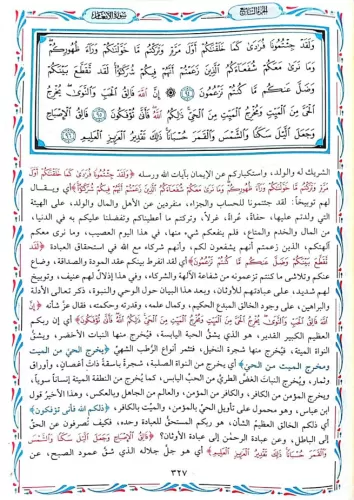 الجزء السابع
سورة الأنعام
وَلَقَدْ جِئْتُمُونَا فُرَادَىٰ كَمَا خَلَقْنَاكُمْ أَوَّلَ مَرَّةٍ وَتَرَكْتُم مَّا خَوَّلْنَاكُمْ وَرَاءَ ظُهُورِكُمْ
وَمَا نَرَىٰ مَعَكُمْ شُفَعَاءَكُمُ الَّذِينَ زَعَمْتُمْ أَنَّهُمْ فِيكُمْ شُرَكَاءُ لَقَد تَّقَطَّعَ بَيْنَكُمْ
وَضَلَّ عَنكُم مَّا كُنتُمْ تَزْعُمُونَ ﴿٩٤﴾ إِنَّ اللَّهَ فَالِقُ الْحَبِّ وَالنَّوَىٰ يُخْرِجُ
الْحَيَّ مِنَ الْمَيِّتِ وَمُخْرِجُ الْمَيِّتِ مِنَ الْحَيِّ ذَٰلِكُمُ اللَّهُ فَأَنَّىٰ تُؤْفَكُونَ ﴿٩٥﴾ فَالِقُ الْإِصْبَاحِ
وَجَعَلَ اللَّيْلَ سَكَنًا وَالشَّمْسَ وَالْقَمَرَ حُسْبَانًا ذَٰلِكَ تَقْدِيرُ الْعَزِيزِ الْعَلِيمِ ﴿٩٦﴾
الشريك له والولد، واستكباركم عن الإيمان بآيات الله ورسله ﴿وَلَقَدْ جِئْتُمُونَا فُرَادَىٰ كَمَا خَلَقْنَاكُمْ أَوَّلَ
مَرَّةٍ وَتَرَكْتُم مَّا خَوَّلْنَاكُمْ وَرَاءَ ظُهُورِكُمْ وَمَا نَرَىٰ مَعَكُمْ شُفَعَاءَكُمُ الَّذِينَ زَعَمْتُمْ أَنَّهُمْ فِيكُمْ شُرَكَاءُ﴾ أي ويقال
لهم توبيخاً: لقد جئتمونا للحساب والجزاء، منفردين عن الأهل والمال والولد، على الهيئة
التي ولدتم عليها، حفاةً، عراةً، غرلاً، وتركتم ما أعطيناكم وتفضلنا عليكم به في الدنيا،
من المال والخدم والمتاع، فلم ينفعكم شيء منها، في هذا اليوم العصيب، وما نرى معكم
آلهتكم، الذين زعمتم أنهم يشفعون لكم، وأنهم شركاء مع الله في استحقاق العبادة ﴿لَقَد
تَّقَطَّعَ بَيْنَكُمْ وَضَلَّ عَنكُم مَّا كُنتُمْ تَزْعُمُونَ﴾ أي لقد انفرط بينكم عقد المودة والصداقة، وضاع
عنكم وتلاشى ما كنتم تزعمونه من شفاعة الآلهة والشركاء، وفي هذا إذلال لهم عنيف، وتوبيخ
لهم شديد، على عبادتهم للأوثان، وبعد هذا البيان حول الوحي والنبوة، ذكر تعالى الأدلة
والبراهين، على وجود الخالق المبدع الحكيم، وكمال علمه، وقدرته وحكمته، فقال عزَّ شأنه ﴿إِنَّ
اللَّهَ فَالِقُ الْحَبِّ وَالنَّوَىٰ يُخْرِجُ الْحَيَّ مِنَ الْمَيِّتِ وَمُخْرِجُ الْمَيِّتِ مِنَ الْحَيِّ ذَٰلِكُمُ اللَّهُ فَأَنَّىٰ تُؤْفَكُونَ﴾ أي إن ربكم
العظيم الكبير القدير، هو الذي يشقُّ الحبة اليابسة، فيخرج منها النبات الأخضر، ويشق
النواة الميتة، فيُخرج منها شجرة النخيل، فتثمر أنواع الرُّطب الشهيِّ ﴿يخرج الحيَّ من الميت
ومخرج الميت من الحي﴾ أي يخرج من النواة الصلبة، شجرةً باسقةً ذاتَ أغصانٍ، وأوراقٍ
وثمار، ويُخرج النباتَ الغضَّ الطريَّ من الحبِّ اليابس، كما يُخرج من النطفة الميتة إنساناً سوياً،
ويخرج المؤمن من الكافر، والكافر من المؤمن، والعالم من الجاهل وبالعكس، وهذا الأخير قول
ابن عباس، وهو محمول على تأويل الحيِّ بالمؤمن، والميِّت بالكافر. ﴿ذلكم الله فأنى تؤفكون﴾
أي ذلكم الخالق العظيمُ الشأن، هو ربكم المستحقُّ للعبادة وحده، فكيف تُصرفون عن الحق
إلى الباطل، وعن عبادة الرحمٰن إلى عبادة الأوثان؟ ﴿فَالِقُ الْإِصْبَاحِ وَجَعَلَ اللَّيْلَ سَكَنًا وَالشَّمْسَ
وَالْقَمَرَ حُسْبَانًا ذَٰلِكَ تَقْدِيرُ الْعَزِيزِ الْعَلِيمِ﴾ أي هو جلَّ جلاله الذي شقَّ عمود الصبح، عن
٣٢٧